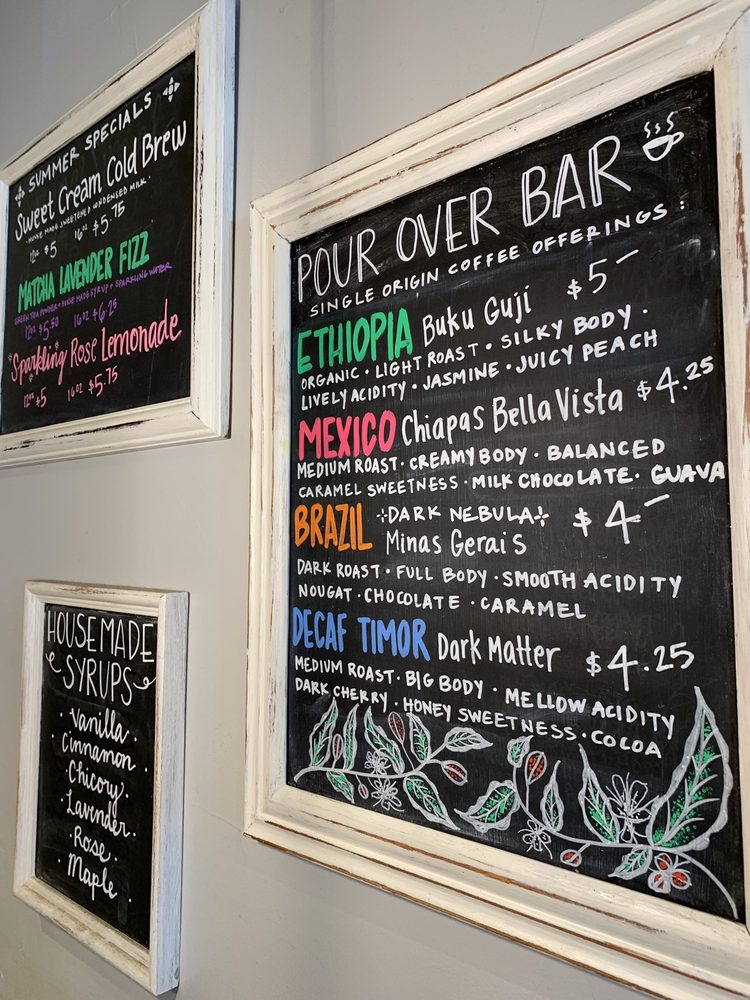 SUMMER SPECIALS
Sweet Cream Cold Brew
HOUSE MADE SWEETENED CONDENSED MILK.
12oz $5 16oz $5.75
MATCHA LAVENDER FIZZ
GREEN TEA POWDER + HOUSE MADE SYRUP + SPARKLING WATER
12oz $5.50 16oz $6.25
Sparkling Rose Lemonade
12oz $5 16oz $5.75
HOUSE MADE
SYRUPS
· Vanilla ·
· Cinnamon ·
· Chicory ·
· Lavender ·
· Rose ·
· Maple ·
POUR OVER BAR
SINGLE ORIGIN COFFEE OFFERINGS:
ETHIOPIA Buku Guji $5-
ORGANIC · LIGHT ROAST · SILKY BODY ·
LIVELY ACIDITY · JASMINE · JUICY PEACH
MEXICO Chiapas Bella Vista $4.25
MEDIUM ROAST · CREAMY BODY · BALANCED
CARAMEL SWEETNESS · MILK CHOCOLATE · GUAVA
BRAZIL DARK NEBULA $4-
Minas Gerais
DARK ROAST · FULL BODY · SMOOTH ACIDITY
NOUGAT · CHOCOLATE · CARAMEL
DECAF TIMOR Dark Matter $4.25
MEDIUM ROAST · BIG BODY · MELLOW ACIDITY
DARK CHERRY · HONEY SWEETNESS · COCOA